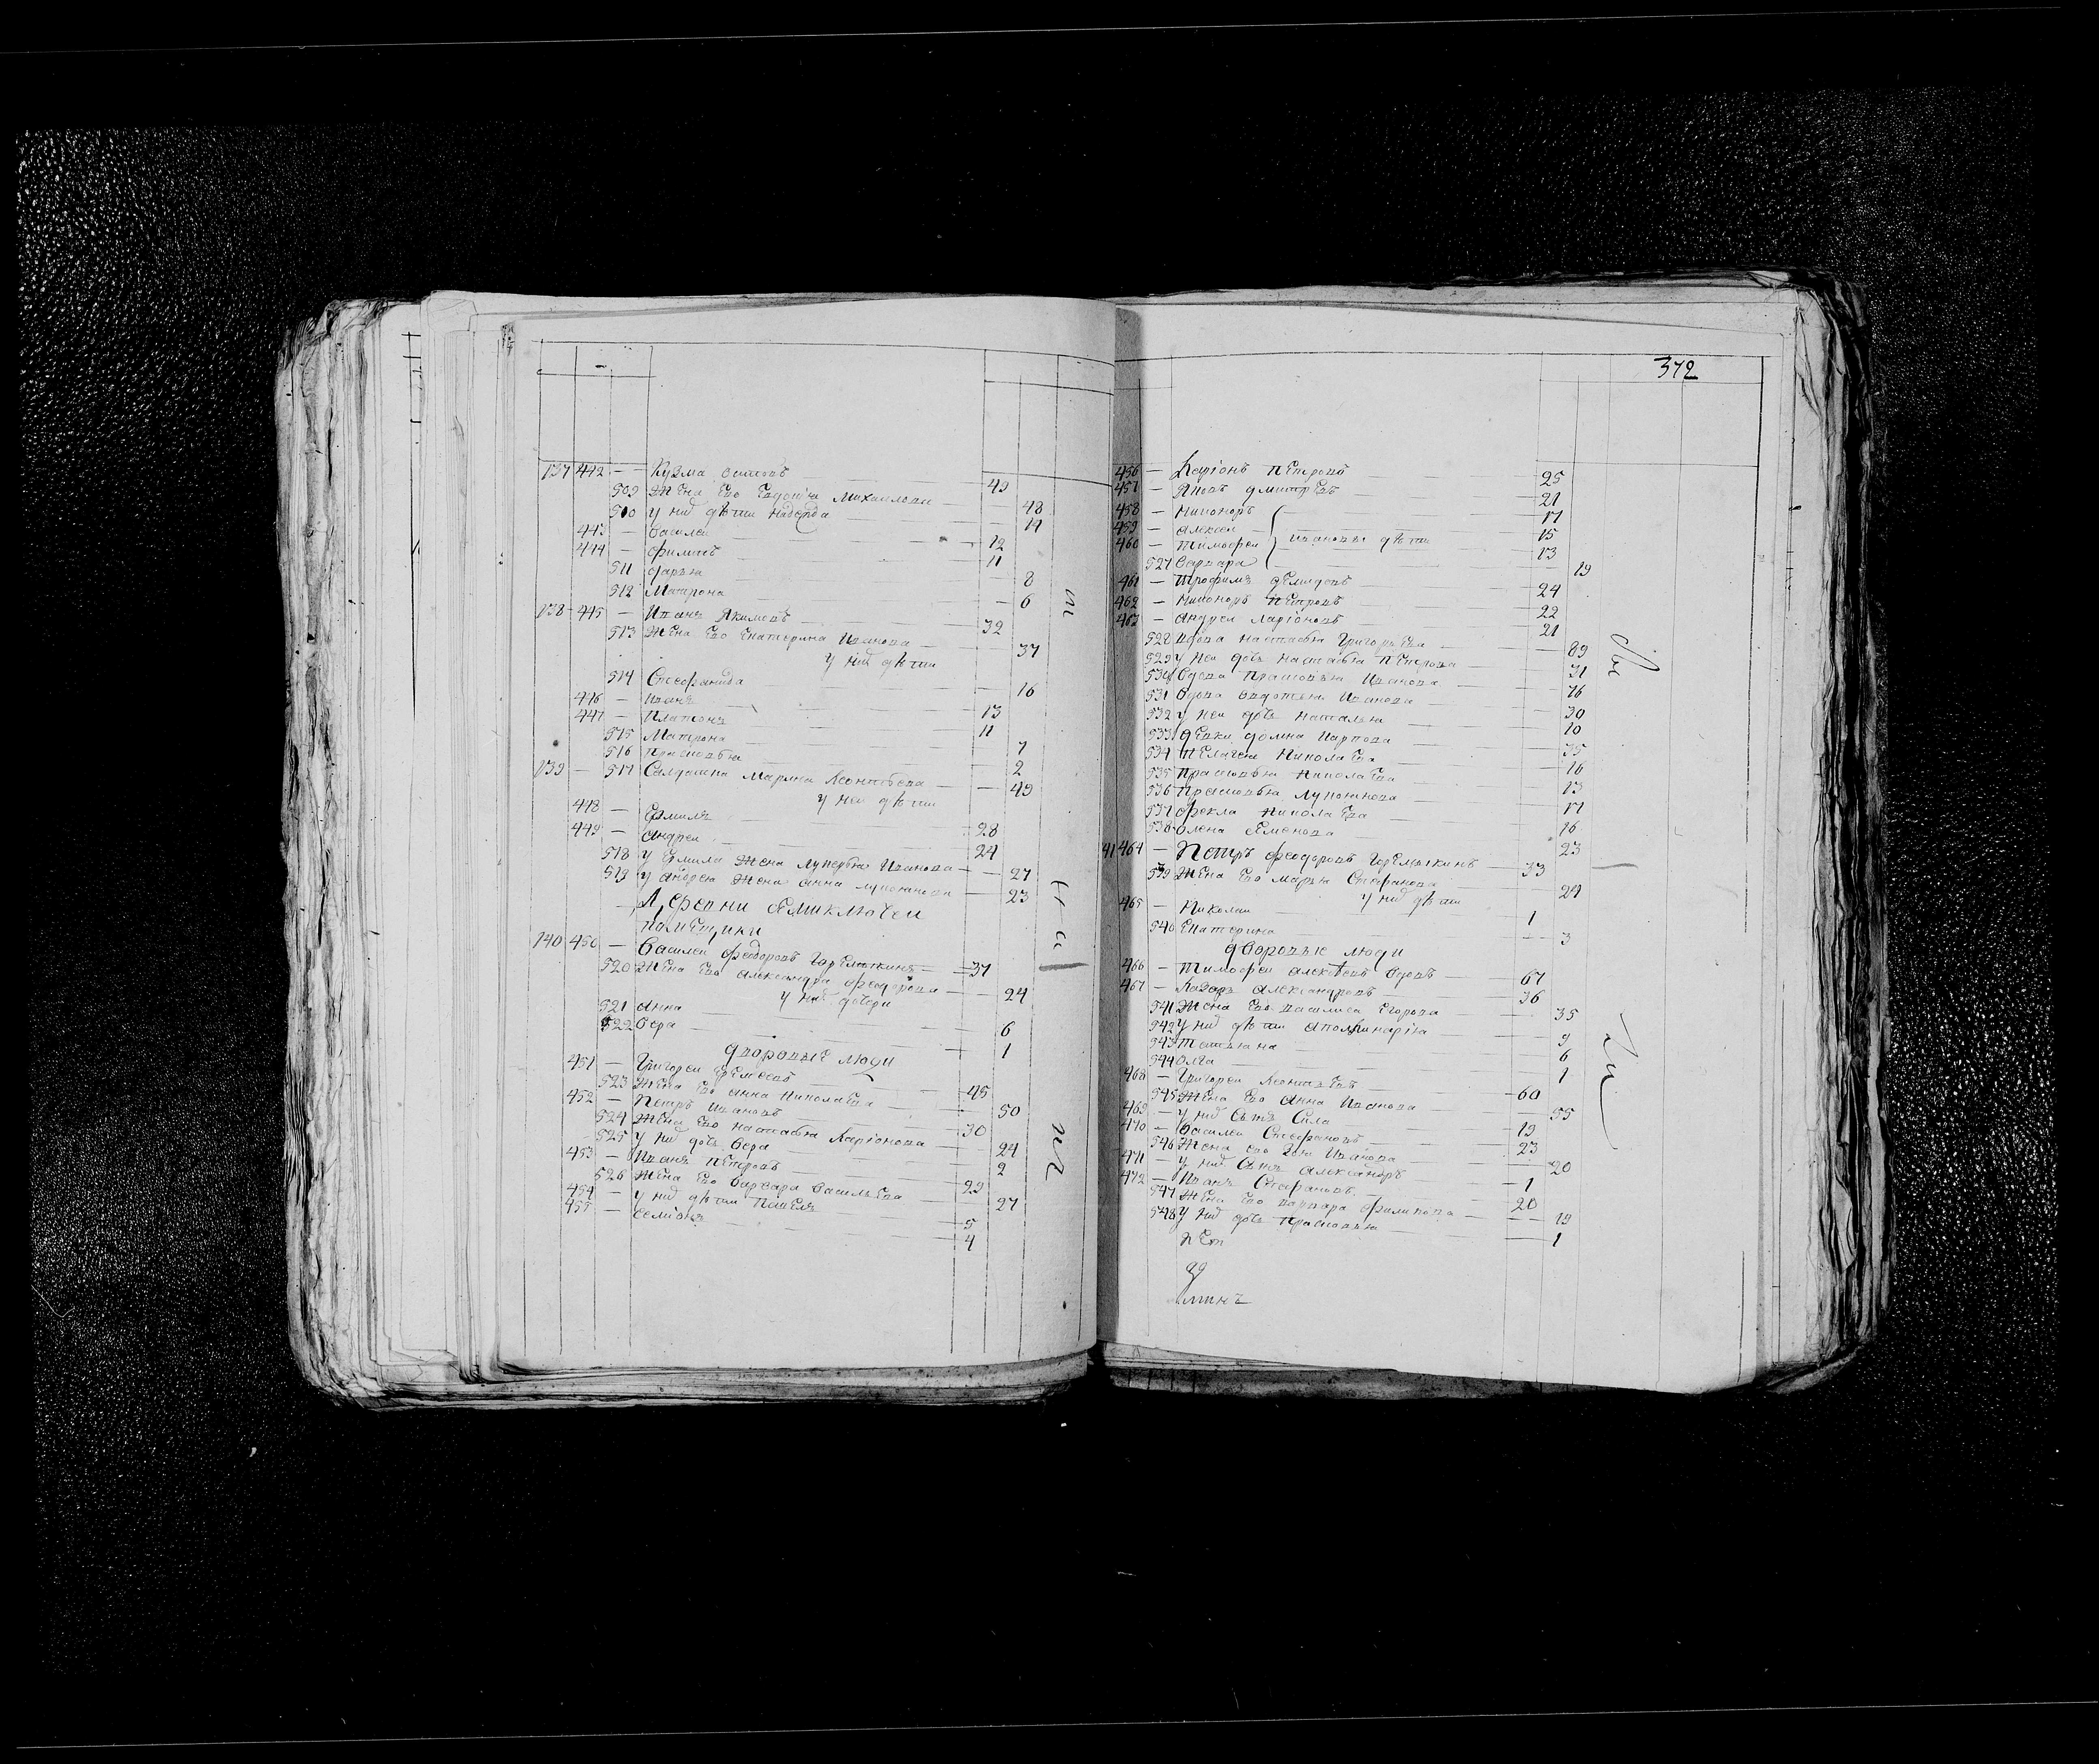 137 442 — Кузма Осиповъ — 49
509 Жена Ево Евдокия Михаилова — 48
510 у них дѣти Надежда — 14
443 — Василеи — 12
444 — Филипъ — 11
511 Дарья — 8
512 Матрона — 6
138 445 — Иванъ Якимовъ — 32
513 Жена Ево Екатерина Иванова — 37
у них дѣти
514 Стефанида — 16
446 — Иванъ — 13
447 — Платонъ — 11
515 Матрона — 7
516 Прасковья — 2
139 — 517 Салдатка Марина Леонтьева — 49
у неи дѣти
448 — Ермилъ — 28
449 — Андреи — 24
518 у Ермила Жена Лукерья Иванова — 27
519 у Андрея Жена Анна — 23
Деревни
помещики
140 450 — Василеи Феодоровъ Горемыкинъ — 37
520 Жена Ево Александра Феодорова — 24
у них дочери
521 Анна — 6
522 Вера — 1
дворовые люди
451 — Григореи Еремеевъ — 45
523 Жена Ево Анна Николаева — 50
452 — Петръ Ивановъ — 30
524 Жена Ево Настасья Ларiонова — 24
525 у них дочь Вера — 2
453 — Иванъ Петровъ — 29
526 Жена Ево Варвара Васильева — 27
454 — у них дѣти Павелъ — 5
455 — Семiонъ — 4
372
456 — Ларiонъ Петровъ — 25
457 — Яковъ Дмитревъ — 21
458 — Никоноръ — 17
459 — Алексеи — Ивановы дѣти — 15
460 — Тимофеи — 13
527 Варвара — 19
461 — Трофимъ Демидовъ — 24
462 — Никоноръ Петровъ — 22
463 — Андреи Ларiоновъ — 21
528 вдова Настасья Григорьева — 89
529 у неи дочь Настасья Петрова — 31
530 вдова Прасковья Иванова — 76
531 вдова Авдотья Иванова — 30
532 у неи дочь Наталья — 10
533 девки Домна Карпова — 35
534 Пелагея Николаева — 16
535 Прасковья Николаева — 13
536 Прасковья — 17
537 Фекла Николаева — 16
538 Олена Семенова — 23
141 464 — Петръ Феодоровъ Горемыкинъ — 33
539 Жена Ево Марья Стефанова — 24
у них дѣти
465 — Николаи — 1
540 Екатерина — 3
дворовые люди
466 — Тимофеи Алексѣевъ вдовъ — 67
467 — Лазарь Александровъ — 36
541 Жена Ево Василиса Егорова — 35
542 у них дѣти Аполинарiя — 9
543 Татьяна — 6
544 Олга — 1
468 — Григореи Леонтьевъ — 60
545 Жена Ево Анна Иванова — 55
469 — у них сынъ Сила — 19
470 — Василеи Стефановъ — 23
546 Жена ево Иванова — 20
471 — у них сынъ Александръ — 1
472 — Иванъ Стефановъ — 20
547 Жена Ево Варвара Филипова — 19
548 у них дочь Прасковья — 1